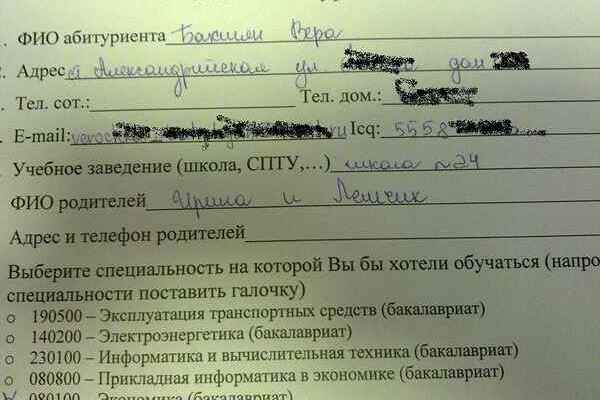 . ФИО абитуриента Бакшли Вера
. Адрес ст Александрийской ул дом
. Тел. сот.: Тел. дом.:
. E-mail: Icq: 5558
Учебное заведение (школа, СПТУ,...) школа №24
ФИО родителей Ирина и Лемчик
Адрес и телефон родителей
Выберите специальность на которой Вы бы хотели обучаться (напро
специальности поставить галочку)
○ 190500 – Эксплуатация транспортных средств (бакалавриат)
○ 140200 – Электроэнергетика (бакалавриат)
○ 230100 – Информатика и вычислительная техника (бакалавриат)
○ 080800 – Прикладная информатика в экономике (бакалавриат)
080100 – Экономика (бакалавриат)